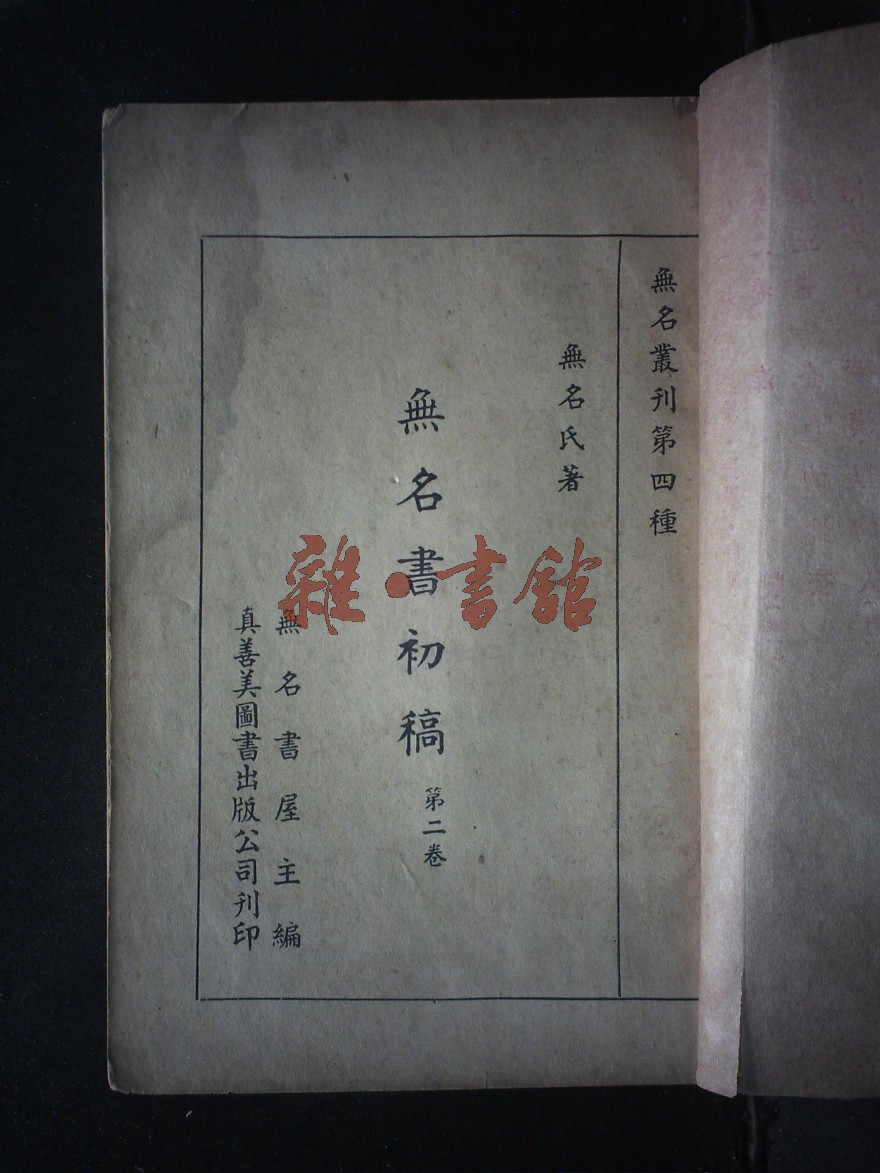 無名叢刊第四種
無名氏著
無名書初稿
第二卷
無名書屋主編
真善美圖書出版公司刊印
雜·書館